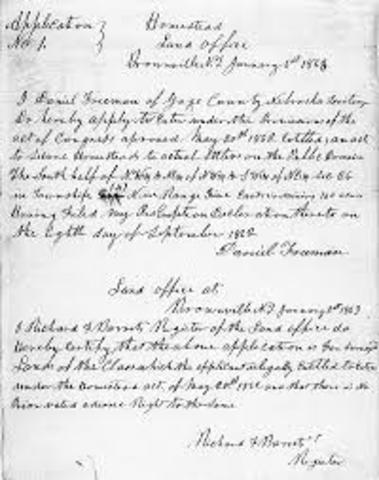 Application } Homestead
No 1. } Land Office
Brownville N.T. January 1st 1863
I Daniel Freeman of Gage County Nebraska Territory
Do hereby apply to Enter under the Provisions of the
act of Congress aproved May 20th 1862 Entitled, an act
to Secure Homesteads to actual Settlers on the Public Domain
The South half of N.W¼ & NE¼ of NW¼ & SW¼ of NE¼ Sec 26
in Township Four (4) N in Range Five East containing 160 acres
Having Filed my Pre Emption Declaration thereto on
the Eighth day of September 1862
Daniel Freeman
Land office at
Brownville N.T. January 1st 1863
I Richard F Barrett Register of the Land office do
hereby Certify that the above application is for Surveyed
Lands of the Class which the applicant is legally Entitled to Enter
under the Homestead act of May 20th 1862 and that there is no
Prior valid adverse Right to the Same
Richard F Barrett
Register